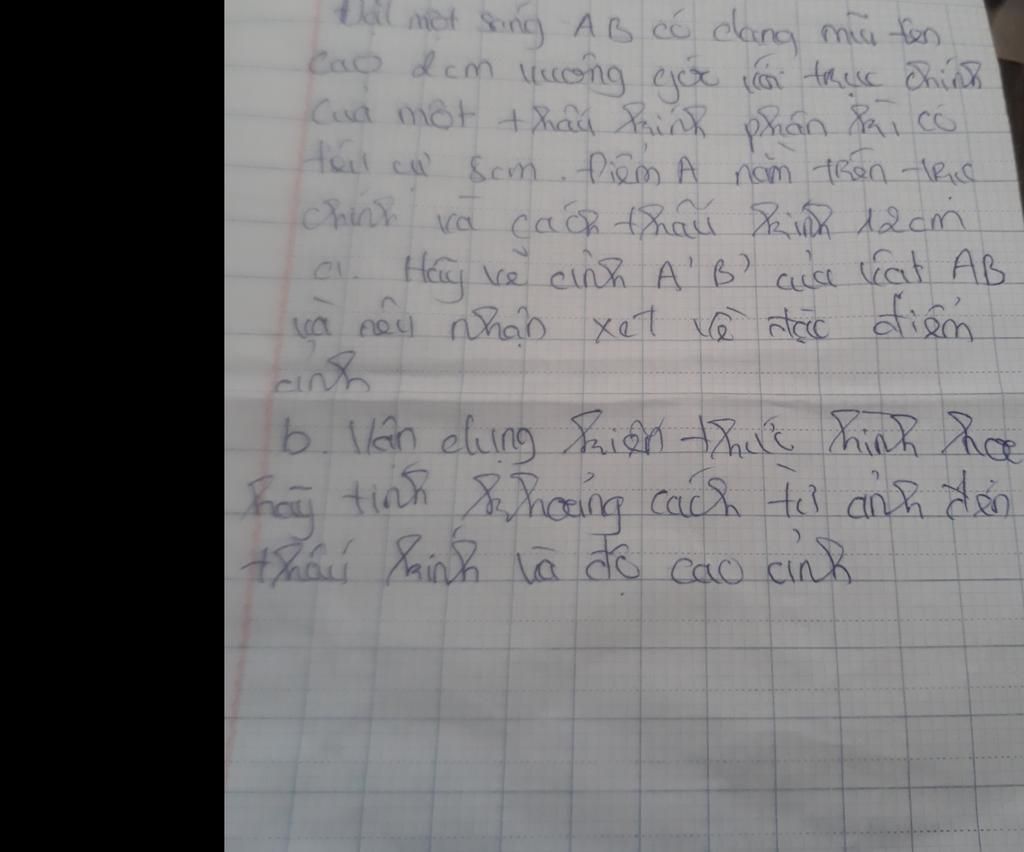 Vật một sáng AB có dạng mũi tên
cao 2cm vuông góc với trục chính
của một thấu kính phân kì, có
tiêu cự 8cm. Điểm A nằm trên trục
chính và cách thấu kính 12cm
a. Hãy vẽ ảnh A'B' của vật AB
và nêu nhận xét về đặc điểm
ảnh
b. Vận dụng kiến thức hình học
hãy tính khoảng cách từ ảnh đến
thấu kính và độ cao ảnh